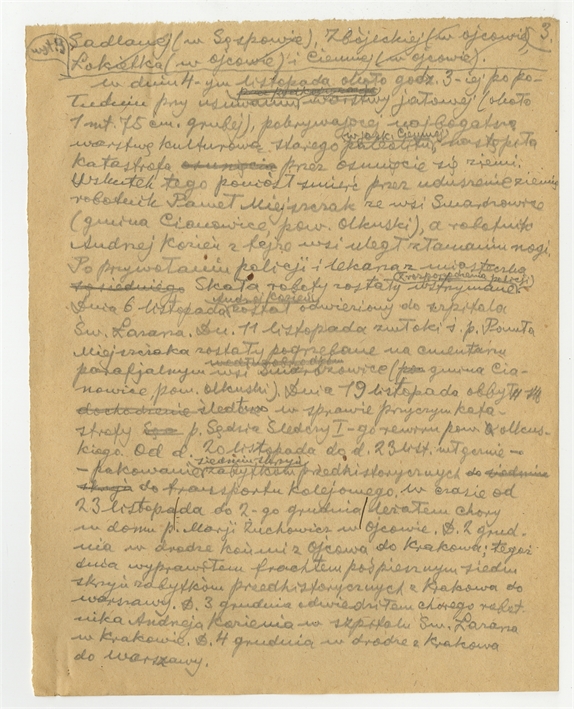 Sadlanej (w Sąspowie), Zbójeckiej (w Ojcowie), 3.
Łokietka (w Ojcowie) i Ciemnej (w Ojcowie).
W dniu 4-ym listopada około godz. 3-iej popo-
łudniu przy usuwaniu warstwy jałowej (około
1 mt. 75 cm. grubej), pokrywającej najbogatszą
w jask. Ciemnej
warstwę kulturową starego paleolitu, nastąpiła
katastrofa przez osunięcie się ziemi.
Wskutek tego poniósł śmierć przez uduszenie ziemią
robotnik Paweł Miejszczak ze wsi Smardzowice
(gmina Cianowice pow. olkuski), a robotnik
Andrzej Kozień z tejże wsi uległ złamaniu nogi.
Po przywołaniu policji i lekarza z miasteczka
z rozporządzenia policji
Skała roboty zostały wstrzymane.
Andrzej Kozień
Dnia 6 listopada został odwieziony do szpitala
Św. Łazarza. Dn. 11 listopada zwłoki ś. p. Pawła
Miejszczaka zostały pogrzebane na cmentarzu
parafjalnym wsi Smardzowice (gmina Cia-
nowice, pow. olkuski). Dnia 19 listopada odbyło się
dochodzenie śledztwo w sprawie przyczyn kata-
strofy p. Sędzia Śledczy I-go rewiru pow. olkus-
kiego. Od d. 20 listopada do d. 23 list. włącznie -
siedmiu skrzyń
- pakowanie zabytków przedhistorycznych do siedmiu
skrzyń do transportu kolejowego. W czasie od
23 listopada do 2-go grudnia leżałem chory
w domu p. Marji Żuchowicz w Ojcowie. D. 2 grud-
nia w drodze końmi z Ojcowa do Krakowa; tegoż
dnia wyprawiłem frachtem pośpiesznym siedm
skrzyń zabytków przedhistorycznych z Krakowa do
Warszawy. D. 3 grudnia odwiedziłem chorego robot-
nika Andrzeja Kozienia w szpitalu Św. Łazarza
w Krakowie. D. 4 grudnia w drodze z Krakowa
do Warszawy.